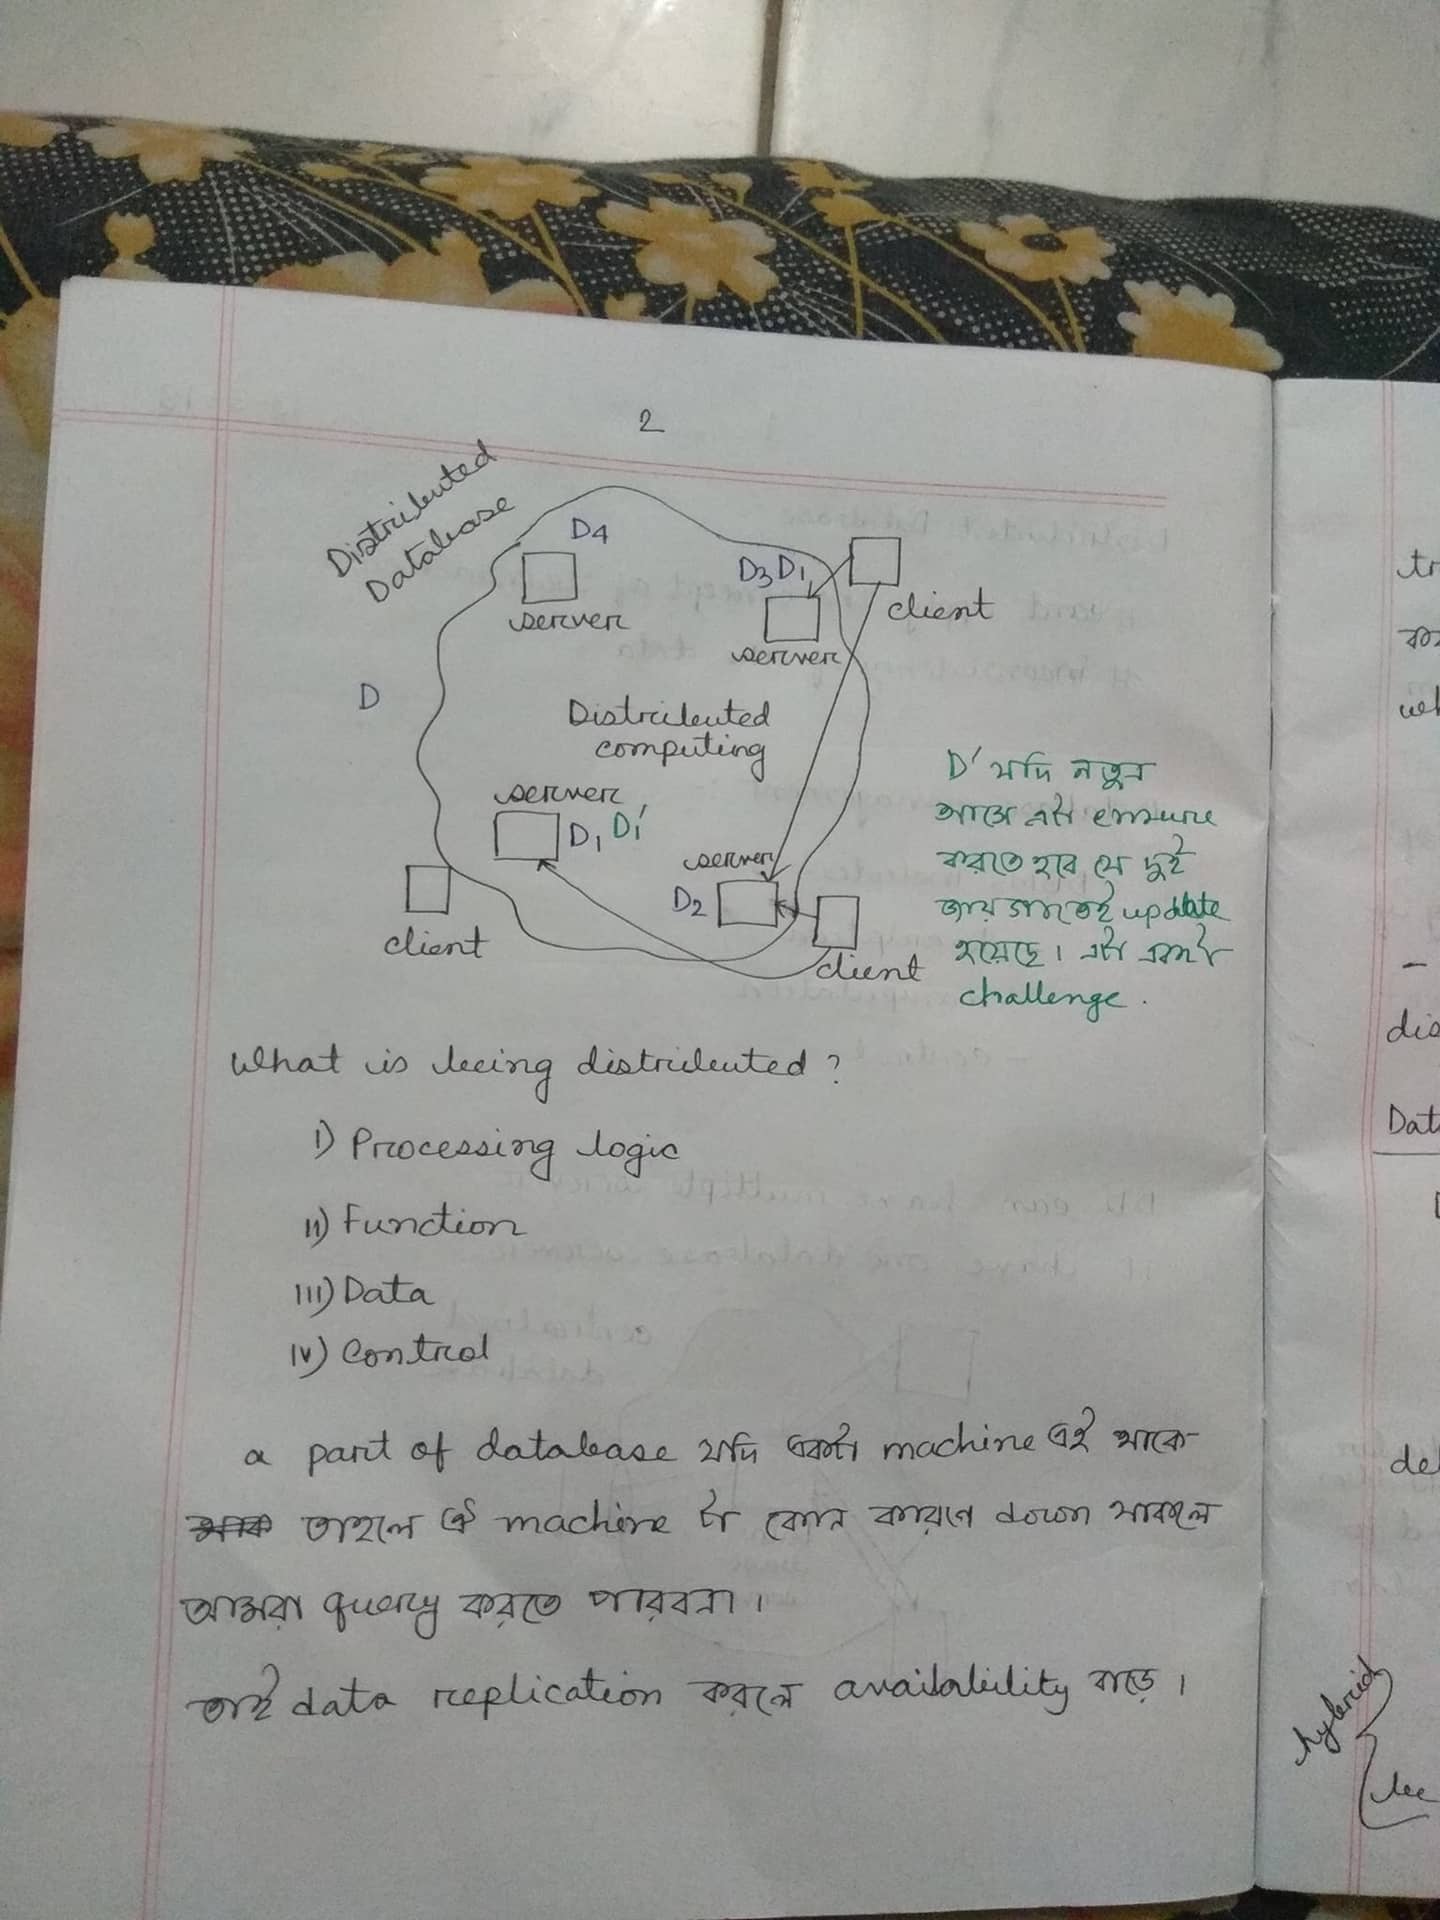 2
Distributed
Database
D4
server
D3 D1
server
client
D
Distributed
computing
server
D1 D1'
server
D2
client
client
D' যদি নতুন
আসে এটা ensure
করতে হবে যে দুই
জায়গাতেই update
হয়েছে। এটা একটা
challenge.
What is being distributed?
i) Processing logic
ii) Function
iii) Data
iv) Control
a part of database যদি একটা machine এই থাকে
তাহলে ঐ machine টা কোন কারণে down থাকলে
আমরা query করতে পারবনা।
তাই data replication করলে availability বাড়ে।
hybrid